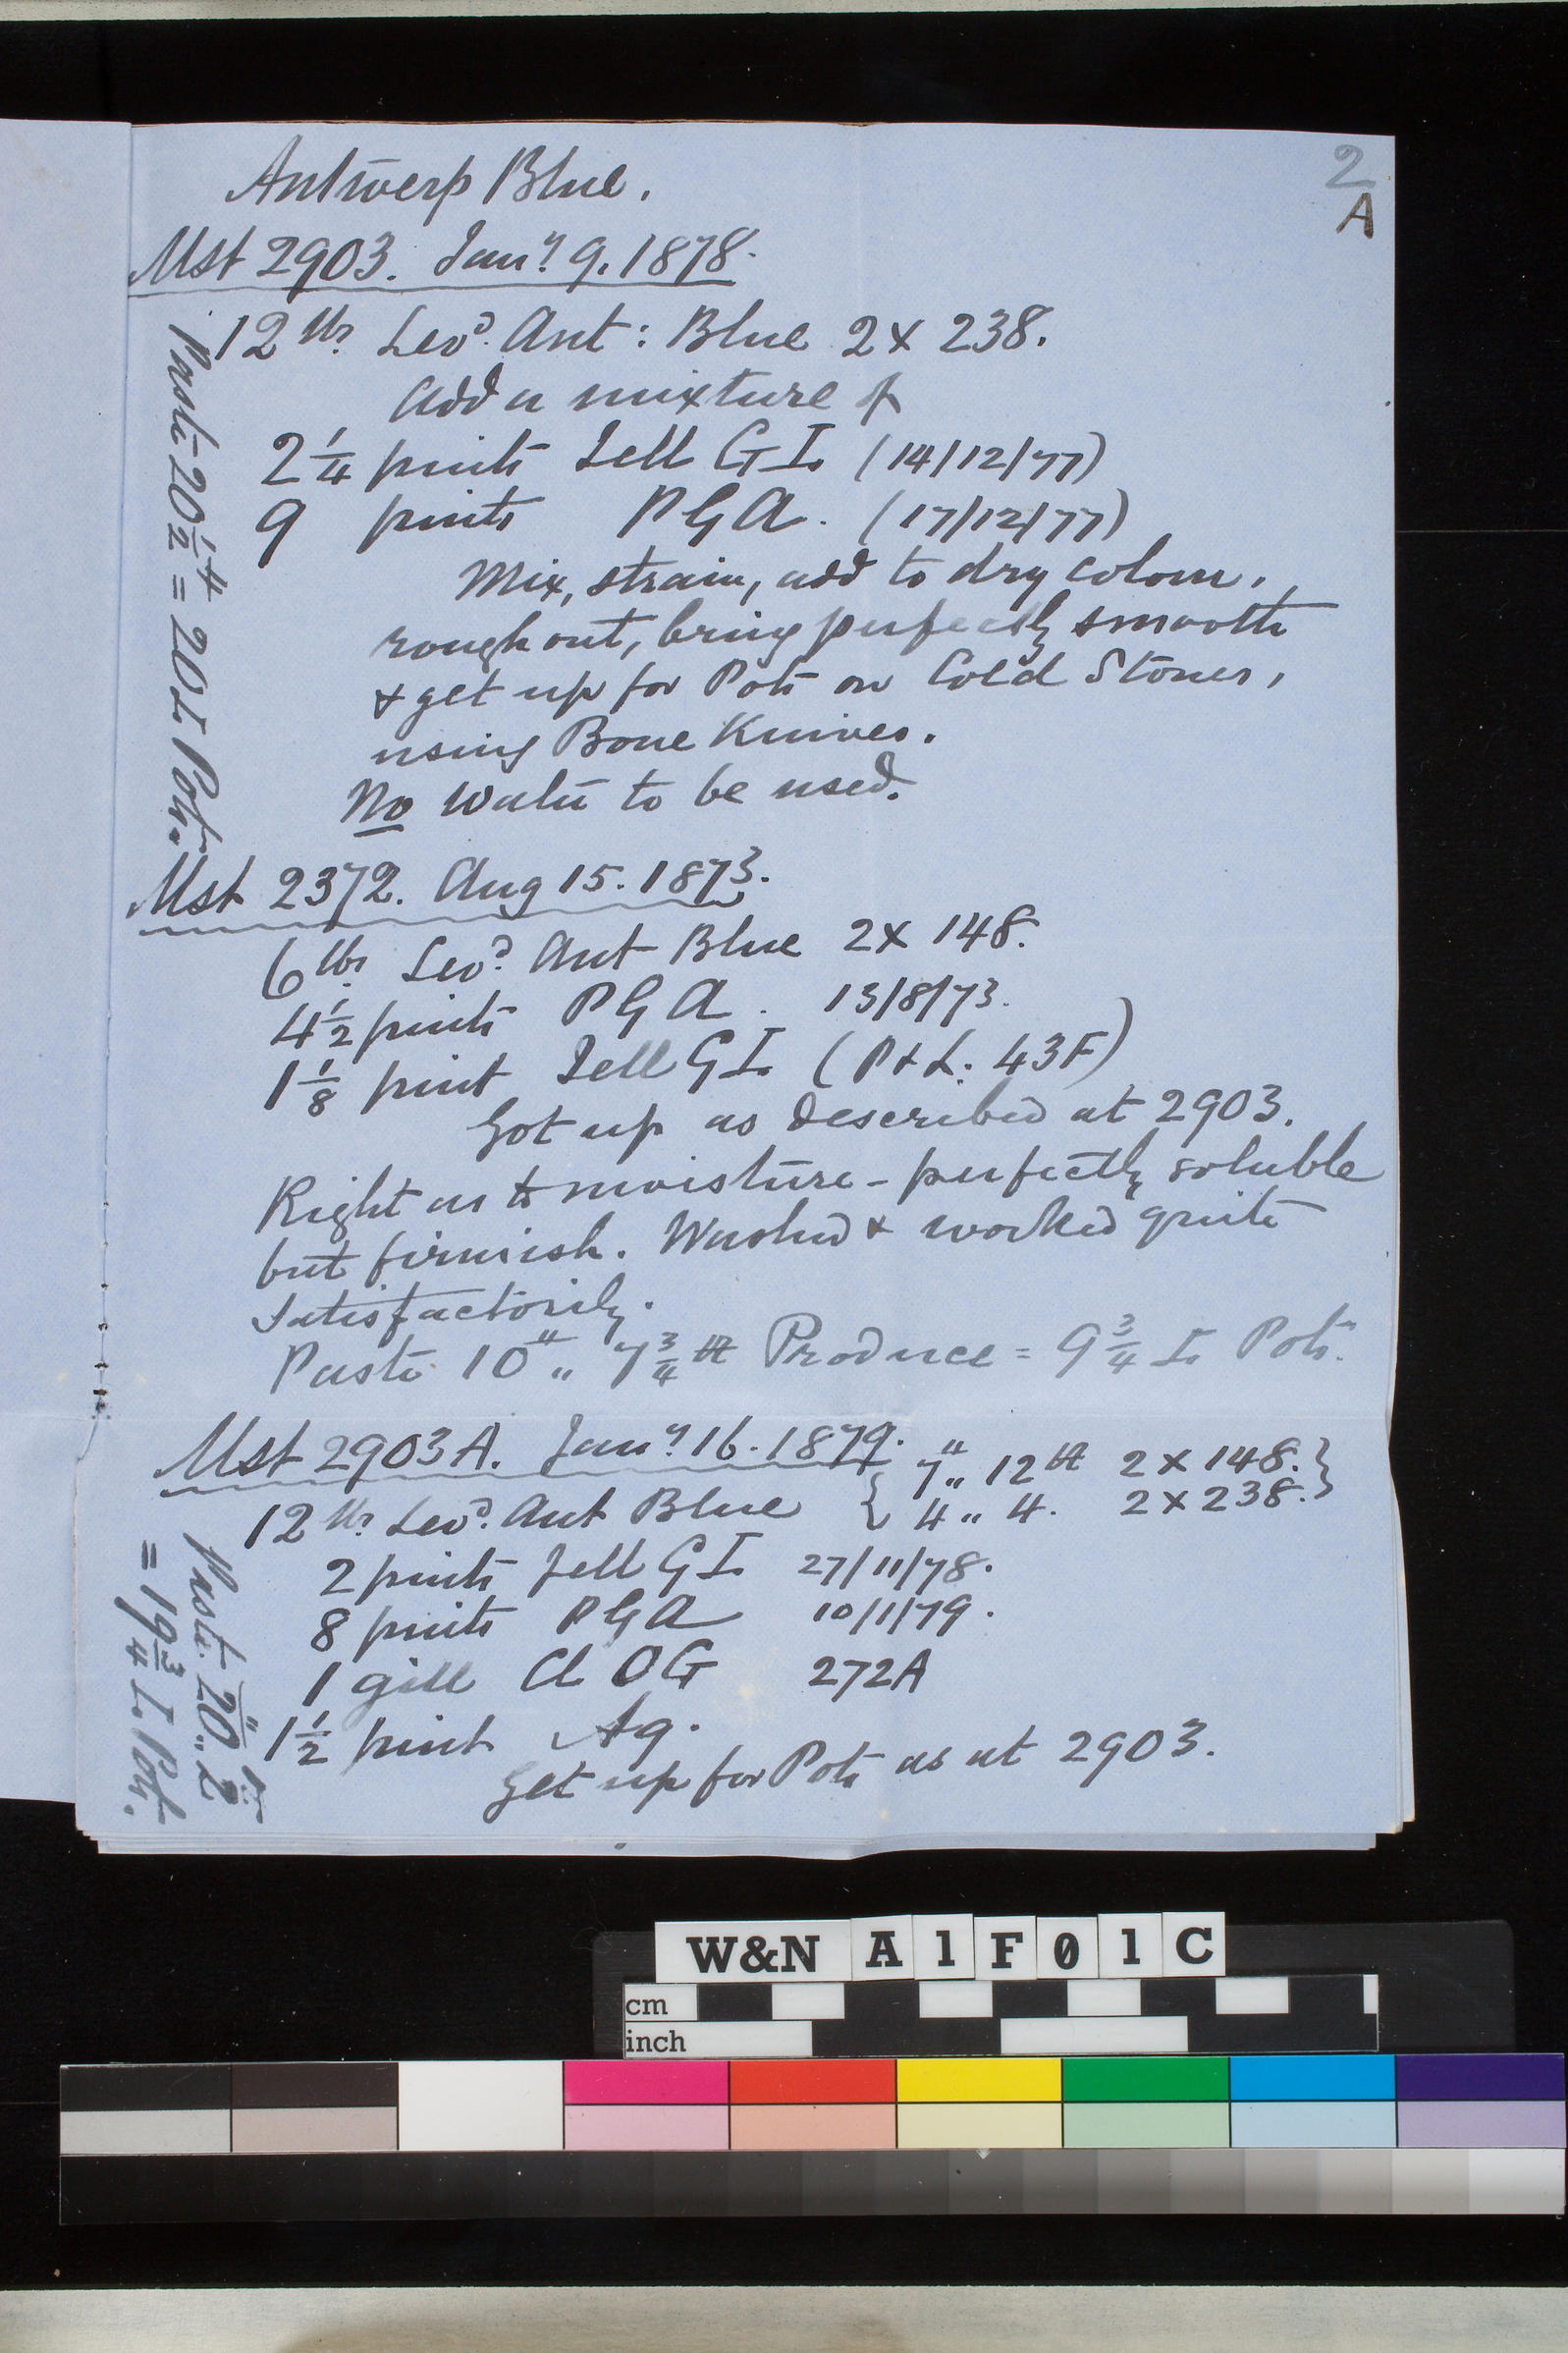 2
A
Antwerp Blue.
Mst 2903. Jany. 9. 1878.
12 lbs. Levd. Ant: Blue 2x 238.
add a mixture of
2 1/4 pints Jell GI. (14/12/77)
9 pints PGA. (17/12/77)
Mix, strain, add to dry colour,
rough out, bring perfectly smooth
& get up for Pots on Cold Stones,
using Bone Knives.
No Water to be used.
Paste 20 1/2 # = 20 I. Pots.
Mst 2372. Aug 15. 1873.
6 lbs. Levd. Ant Blue 2x 148.
4 1/2 pints PGA. 13/8/73.
1 1/8 pint Jell GI. (P & L. 43F)
Got up as described at 2903.
Right as to moisture - perfectly soluble
but firmish. Washed & worked quite
satisfactorily.
Paste 10 # „ 7 3/4 Produce = 9 3/4 I. Pots.
Mst 2903A. Jany. 16. 1879.
12 lbs. Levd. Ant Blue { 7 # „ 12 2 x 148. }
{ 4 „ 4. 2 x 238. }
2 pints Jell GI. 27/11/78.
8 pints PGA 10/1/79.
1 gill Cl OG 272A
1 1/2 pint Aq.
Get up for Pots as at 2903.
Paste 20 „ 2
= 19 3/4 I. Pots.
W&N A1F01C
cm
inch